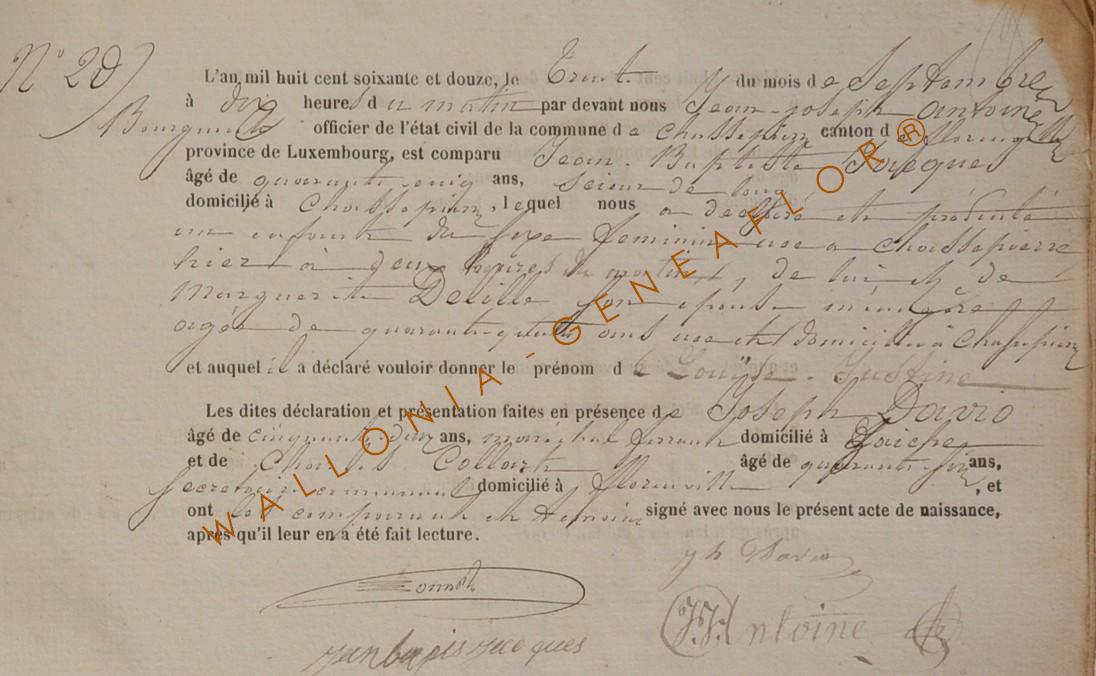 N° 20
L'an mil huit cent soixante et douze, le Trente du mois de Septembre
à dix heures du matin par devant nous Jean-Joseph Antoine
officier de l'état civil de la commune de Chassepierre canton de Florenville
province de Luxembourg, est comparu Jean-Baptiste Jacques
âgé de quarante cinq ans, scieur de long
domicilié à Chassepierre, lequel nous a déclaré et présenté
un enfant du sexe féminin née à Chassepierre
hier à deux heures du matin, de lui et de
Marguerite Delille son épouse ménagère
agée de quarante ans née et domiciliée à Chassepierre
et auquel il a déclaré vouloir donner le prénom de Louise-Justine
Les dites déclaration et présentation faites en présence de Joseph David
âgé de cinquante deux ans, maréchal ferrant domicilié à
et de Charles Collart âgé de quarante ans,
secrétaire communal domicilié à Florenville, et
ont les comparant et témoins signé avec nous le présent acte de naissance,
après qu'il leur en a été fait lecture.
J.J. Antoine
WALLONIA-GENEAFLOR®